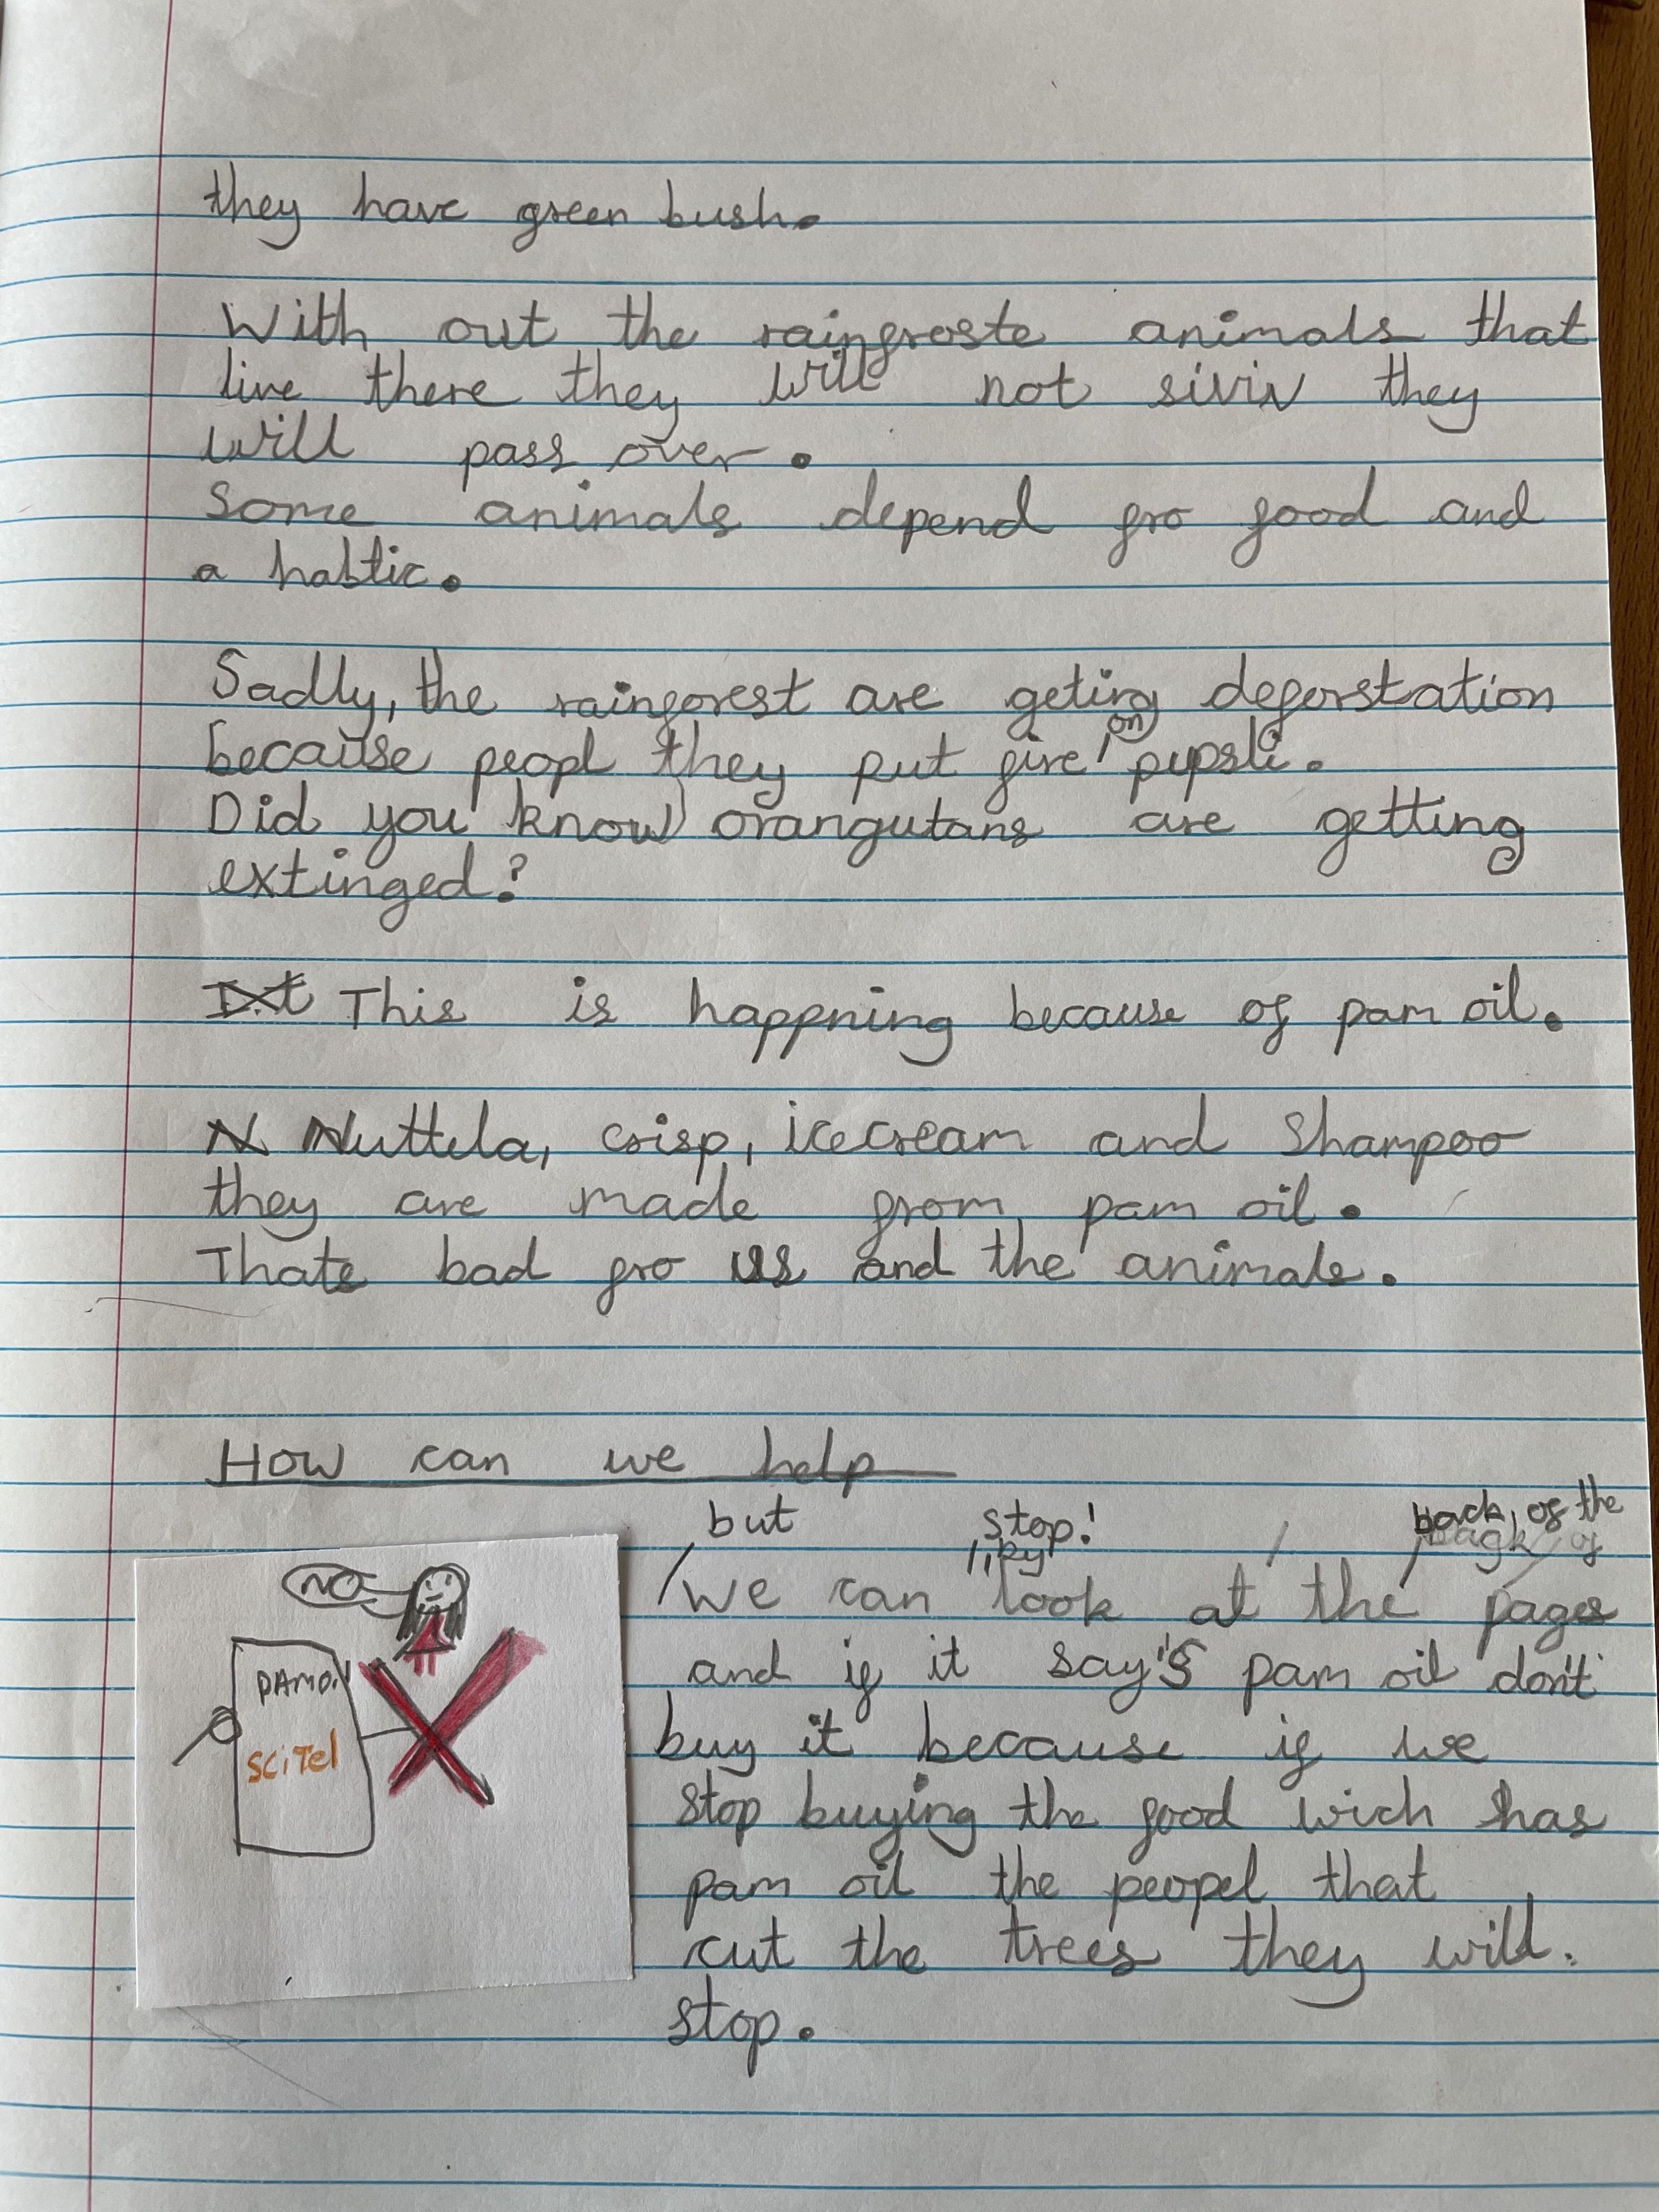 they have green bush.
With out the rainfroste animals that
live there they will not siviv they
will pass over.
Some animals depend fro food and
a habtic.
Sadly, the rainforest are geting deforstation
because peopl they put fire on pupsle.
Did you know orangutans are getting
extinged?
This is happning because of pam oil.
Nuttela, crisp, icecream and Shampoo
they are made from pam oil.
Thats bad fro us and the animals.
How can we help
but stop! back of the
by
we can look at the pages
and if it say's pam oil don't
buy it because if we
stop buying the food wich has
pam oil the peopel that
cut the trees they will.
stop.
NO
PAMOIL
SCITel